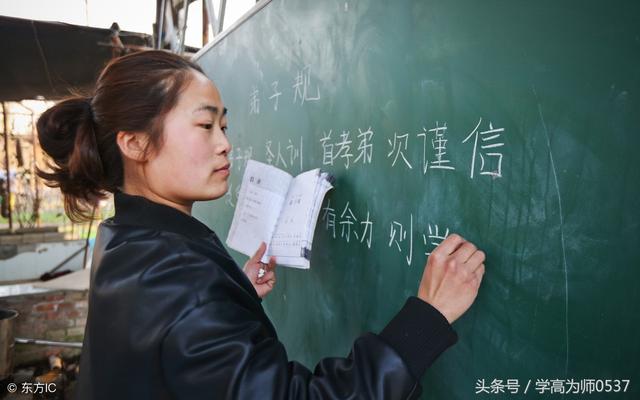 弟子规
圣人训 首孝弟 次谨信
有余力 则学
目录
© 东方IC
头条号 / 学高为师0537